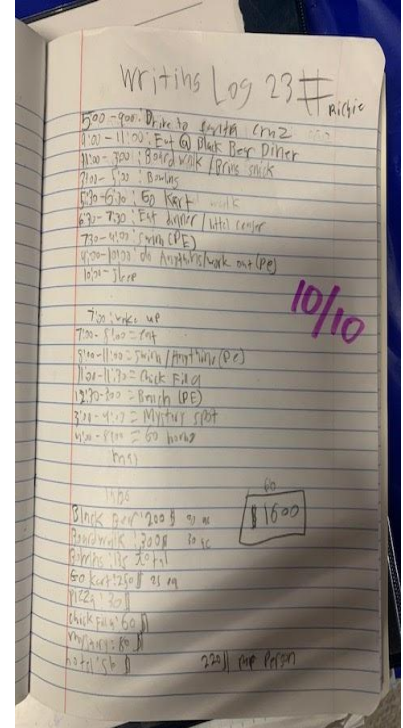 Writing Log 23 #
Richie
5:00-9:00: Drive to Santa Cruz
9:00-11:00: Eat @ Black Bear Diner
11:00-3:00: Boardwalk / Bring snack
3:00-5:00: Bowling
5:30-6:30: Go Kart walk
6:30-7:30: Eat dinner /
7:30-9:00: Swim (PE)
9:00-10:00 do Anything/work out (PE)
10:00-Sleep
10/10
7:00: wake up
7:00-8:00= Eat
8:00-11:00= Swim/Anything (PE)
11:00-11:30= Chick Fila
12:30-3:00= Beach (PE)
3:00-4:00= Mystery spot
4:00-8:00= Go home
$1600
Black Bear: 200$
Boardwalk: 300$
total
Go kart: 250$ 25 ea
Pizza: 30$
Chick Fila: 60$
Mystery: 80$
hotel:
220$ per person